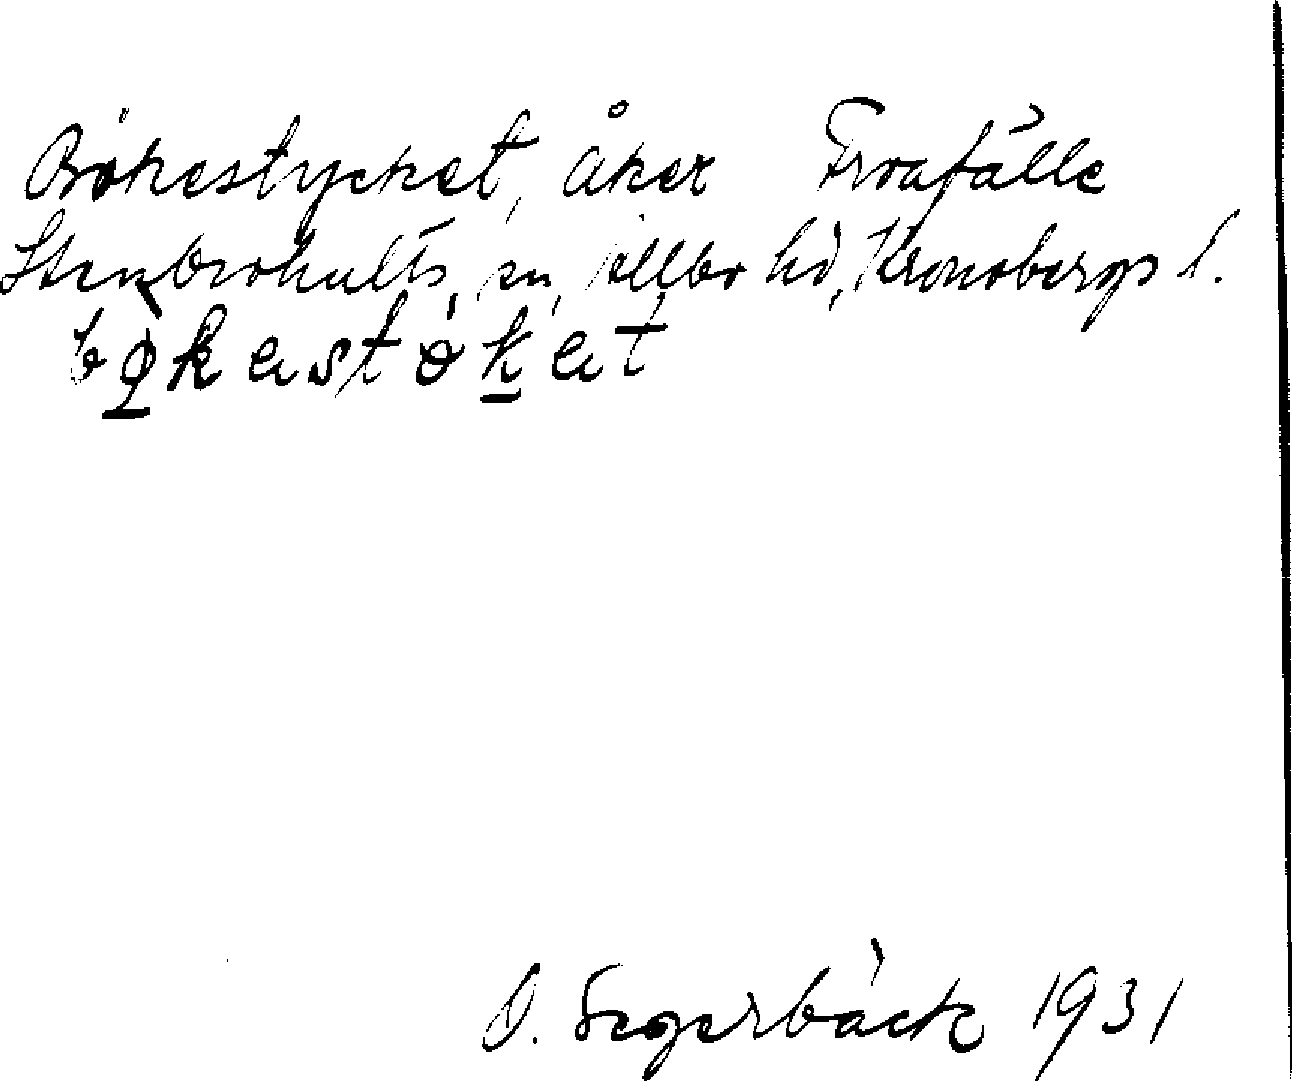 Bökestycket, åker Froafälle
Stenbrohults sn, Allbo hd, Kronobergs l.
bøkastøkat
O. Segerbäck 1931